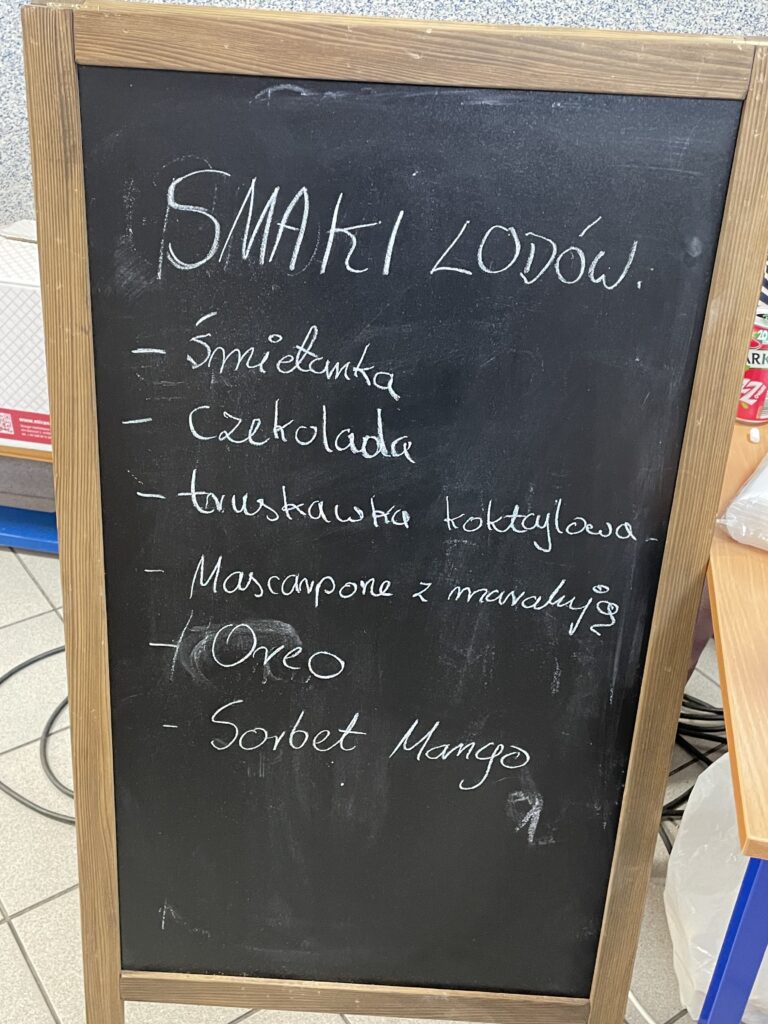 SMAKI LODÓW.
- śmietanka
- czekolada
- truskawka koktajlowa
- Mascarpone z marakują
- Oreo
- Sorbet Mango